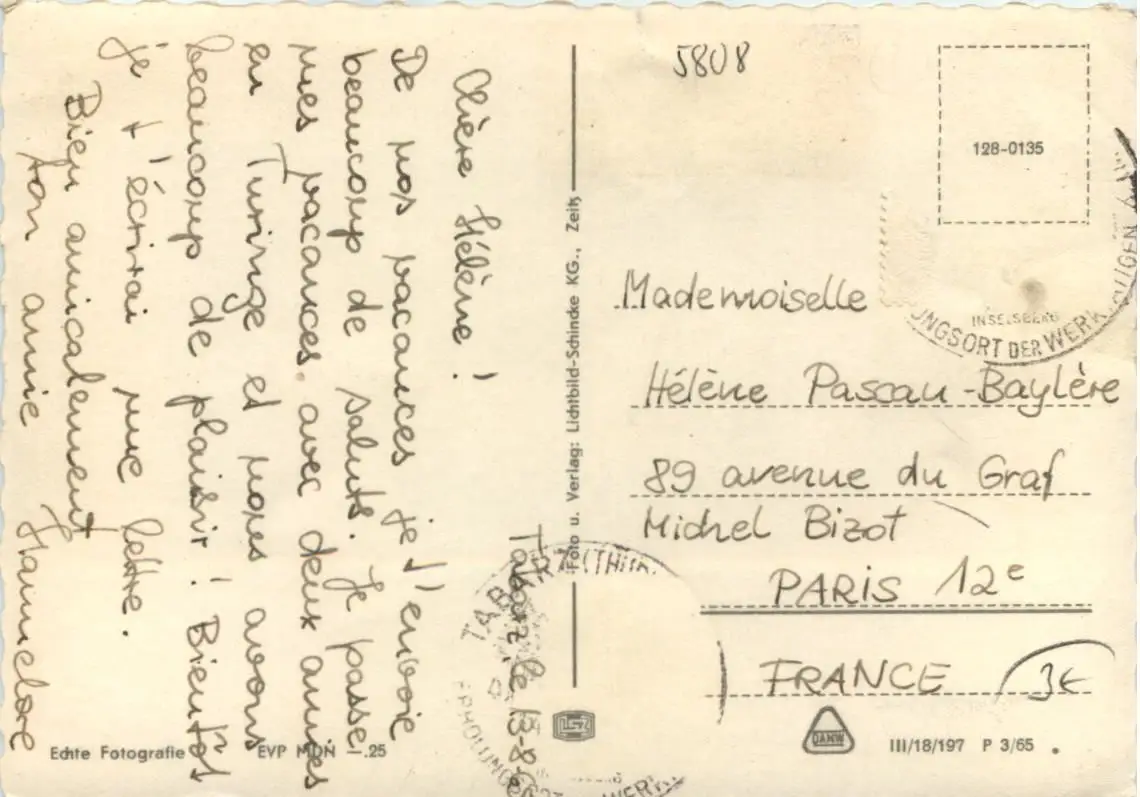 Tabarz, le 13-8-
Chère Hélène !
De nos vacances je t'envoie
beaucoup de saluts. Je passe
mes vacances avec deux amies
en Turinge et nous avons
beaucoup de plaisir ! Bientôt
je t'écrirai une lettre.
Bien amicalement
ton amie Hannelore
Echte Fotografie EVP MDN -.25
Foto u. Verlag: Lichtbild-Schincke KG., Zeitz
5808
128-0135
INSELSBERG
UNGSORT DER WERK
TABARZ (THÜR.
ERHOLUNGSORT WERK
Mademoiselle
Hélène Pascau-Baylère
89 avenue du Graf
Michel Bizot
PARIS 12e
FRANCE
3€
DANW
III/18/197 P 3/65